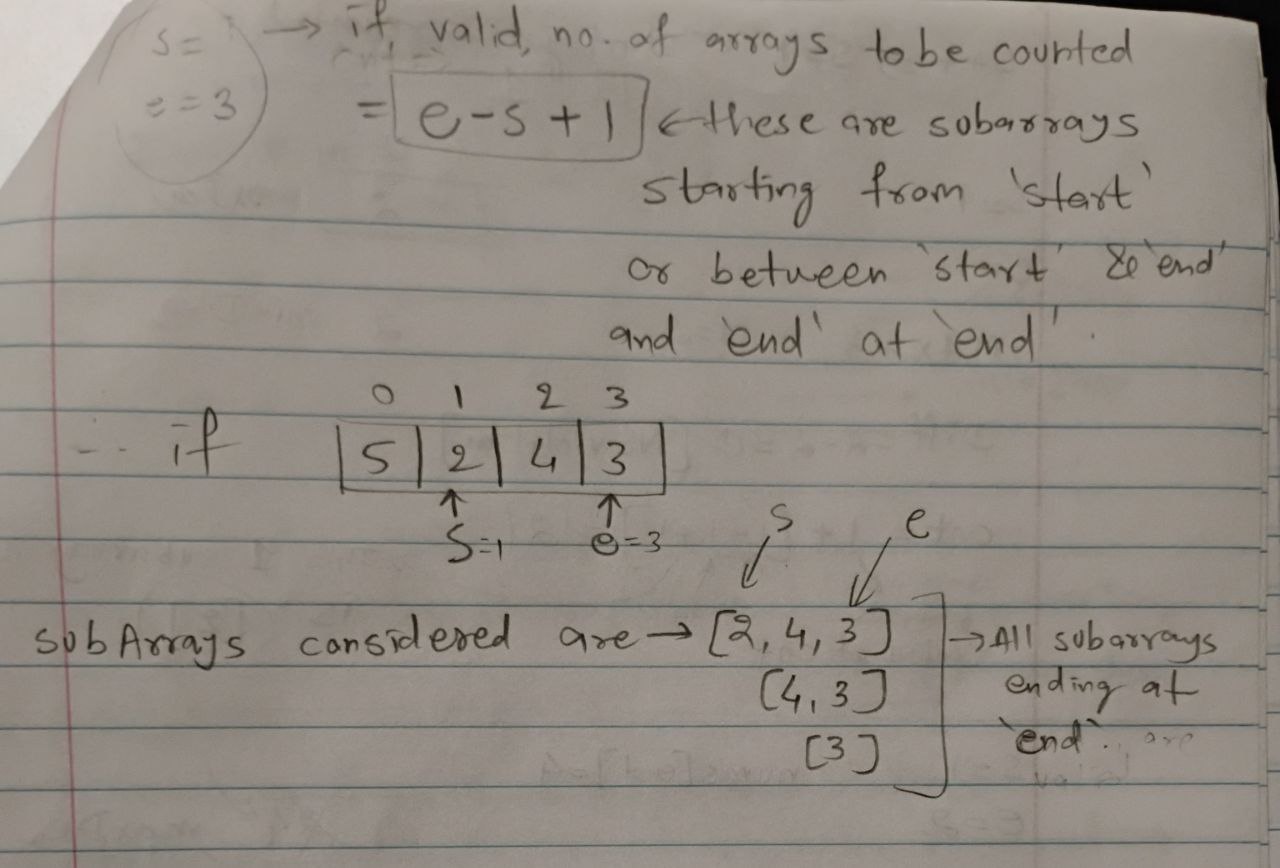 s=
e=3
→ if valid, no. of arrays to be counted
= e-s+1 ← these are subarrays
starting from 'start'
or between 'start' & 'end'
and 'end' at 'end'.
0 1 2 3
if 5 2 4 3
s=1 e=3
s e
subArrays considered are → [2,4,3] → All subarrays
[4,3] ending at
[3] 'end'. are